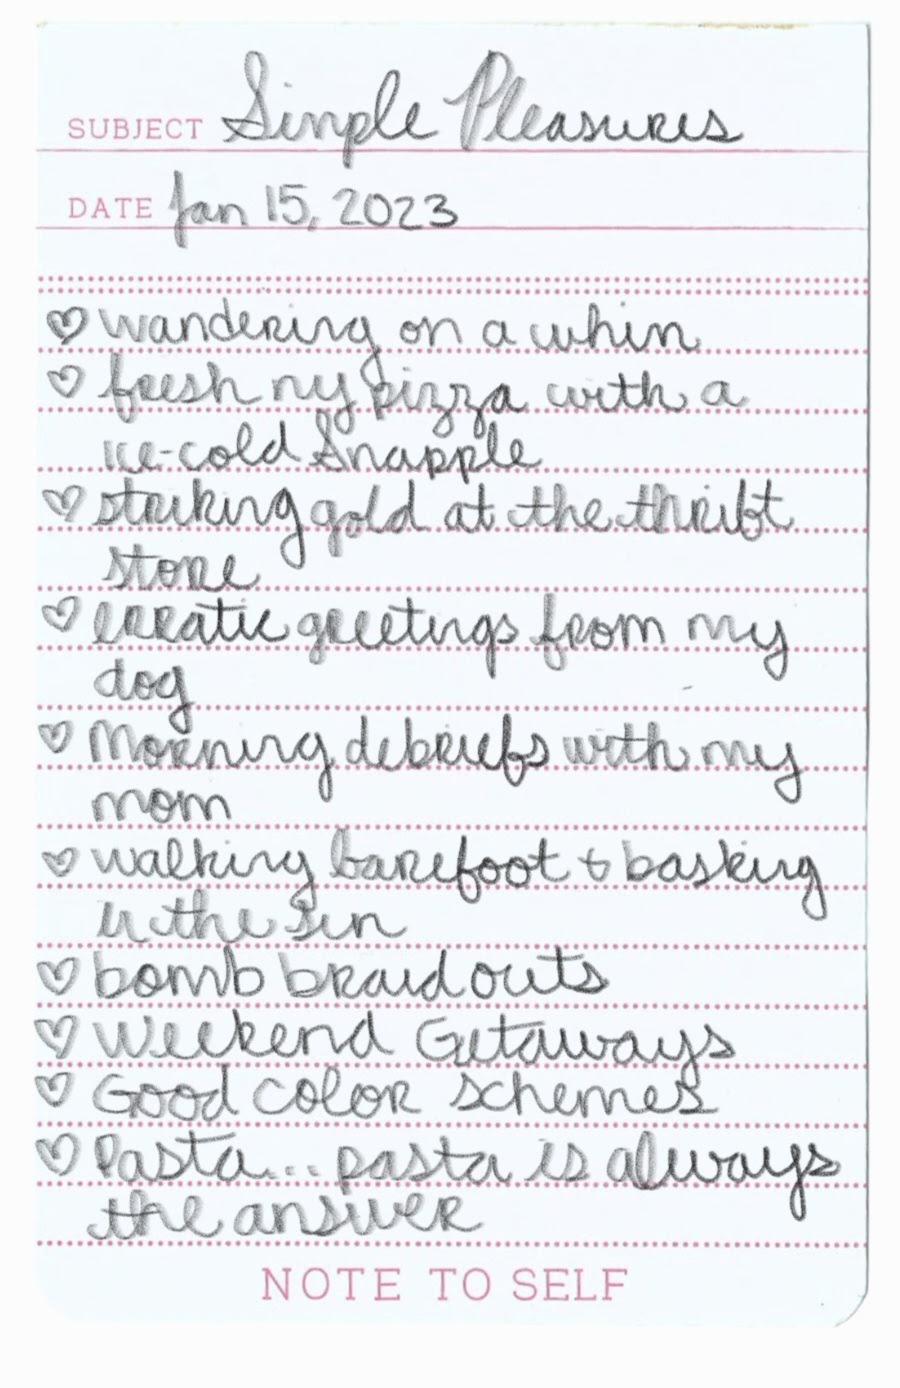 SUBJECT Simple Pleasures
DATE Jan 15, 2023
♡ wandering on a whim
♡ fresh ny pizza with a
ice-cold Snapple
♡ striking gold at the thrift
store
♡ erratic greetings from my
dog
♡ Morning debriefs with my
mom
♡ walking barefoot & basking
in the sun
♡ bomb braidouts
♡ Weekend Getaways
♡ Good color schemes
♡ Pasta... pasta is always
the answer
NOTE TO SELF